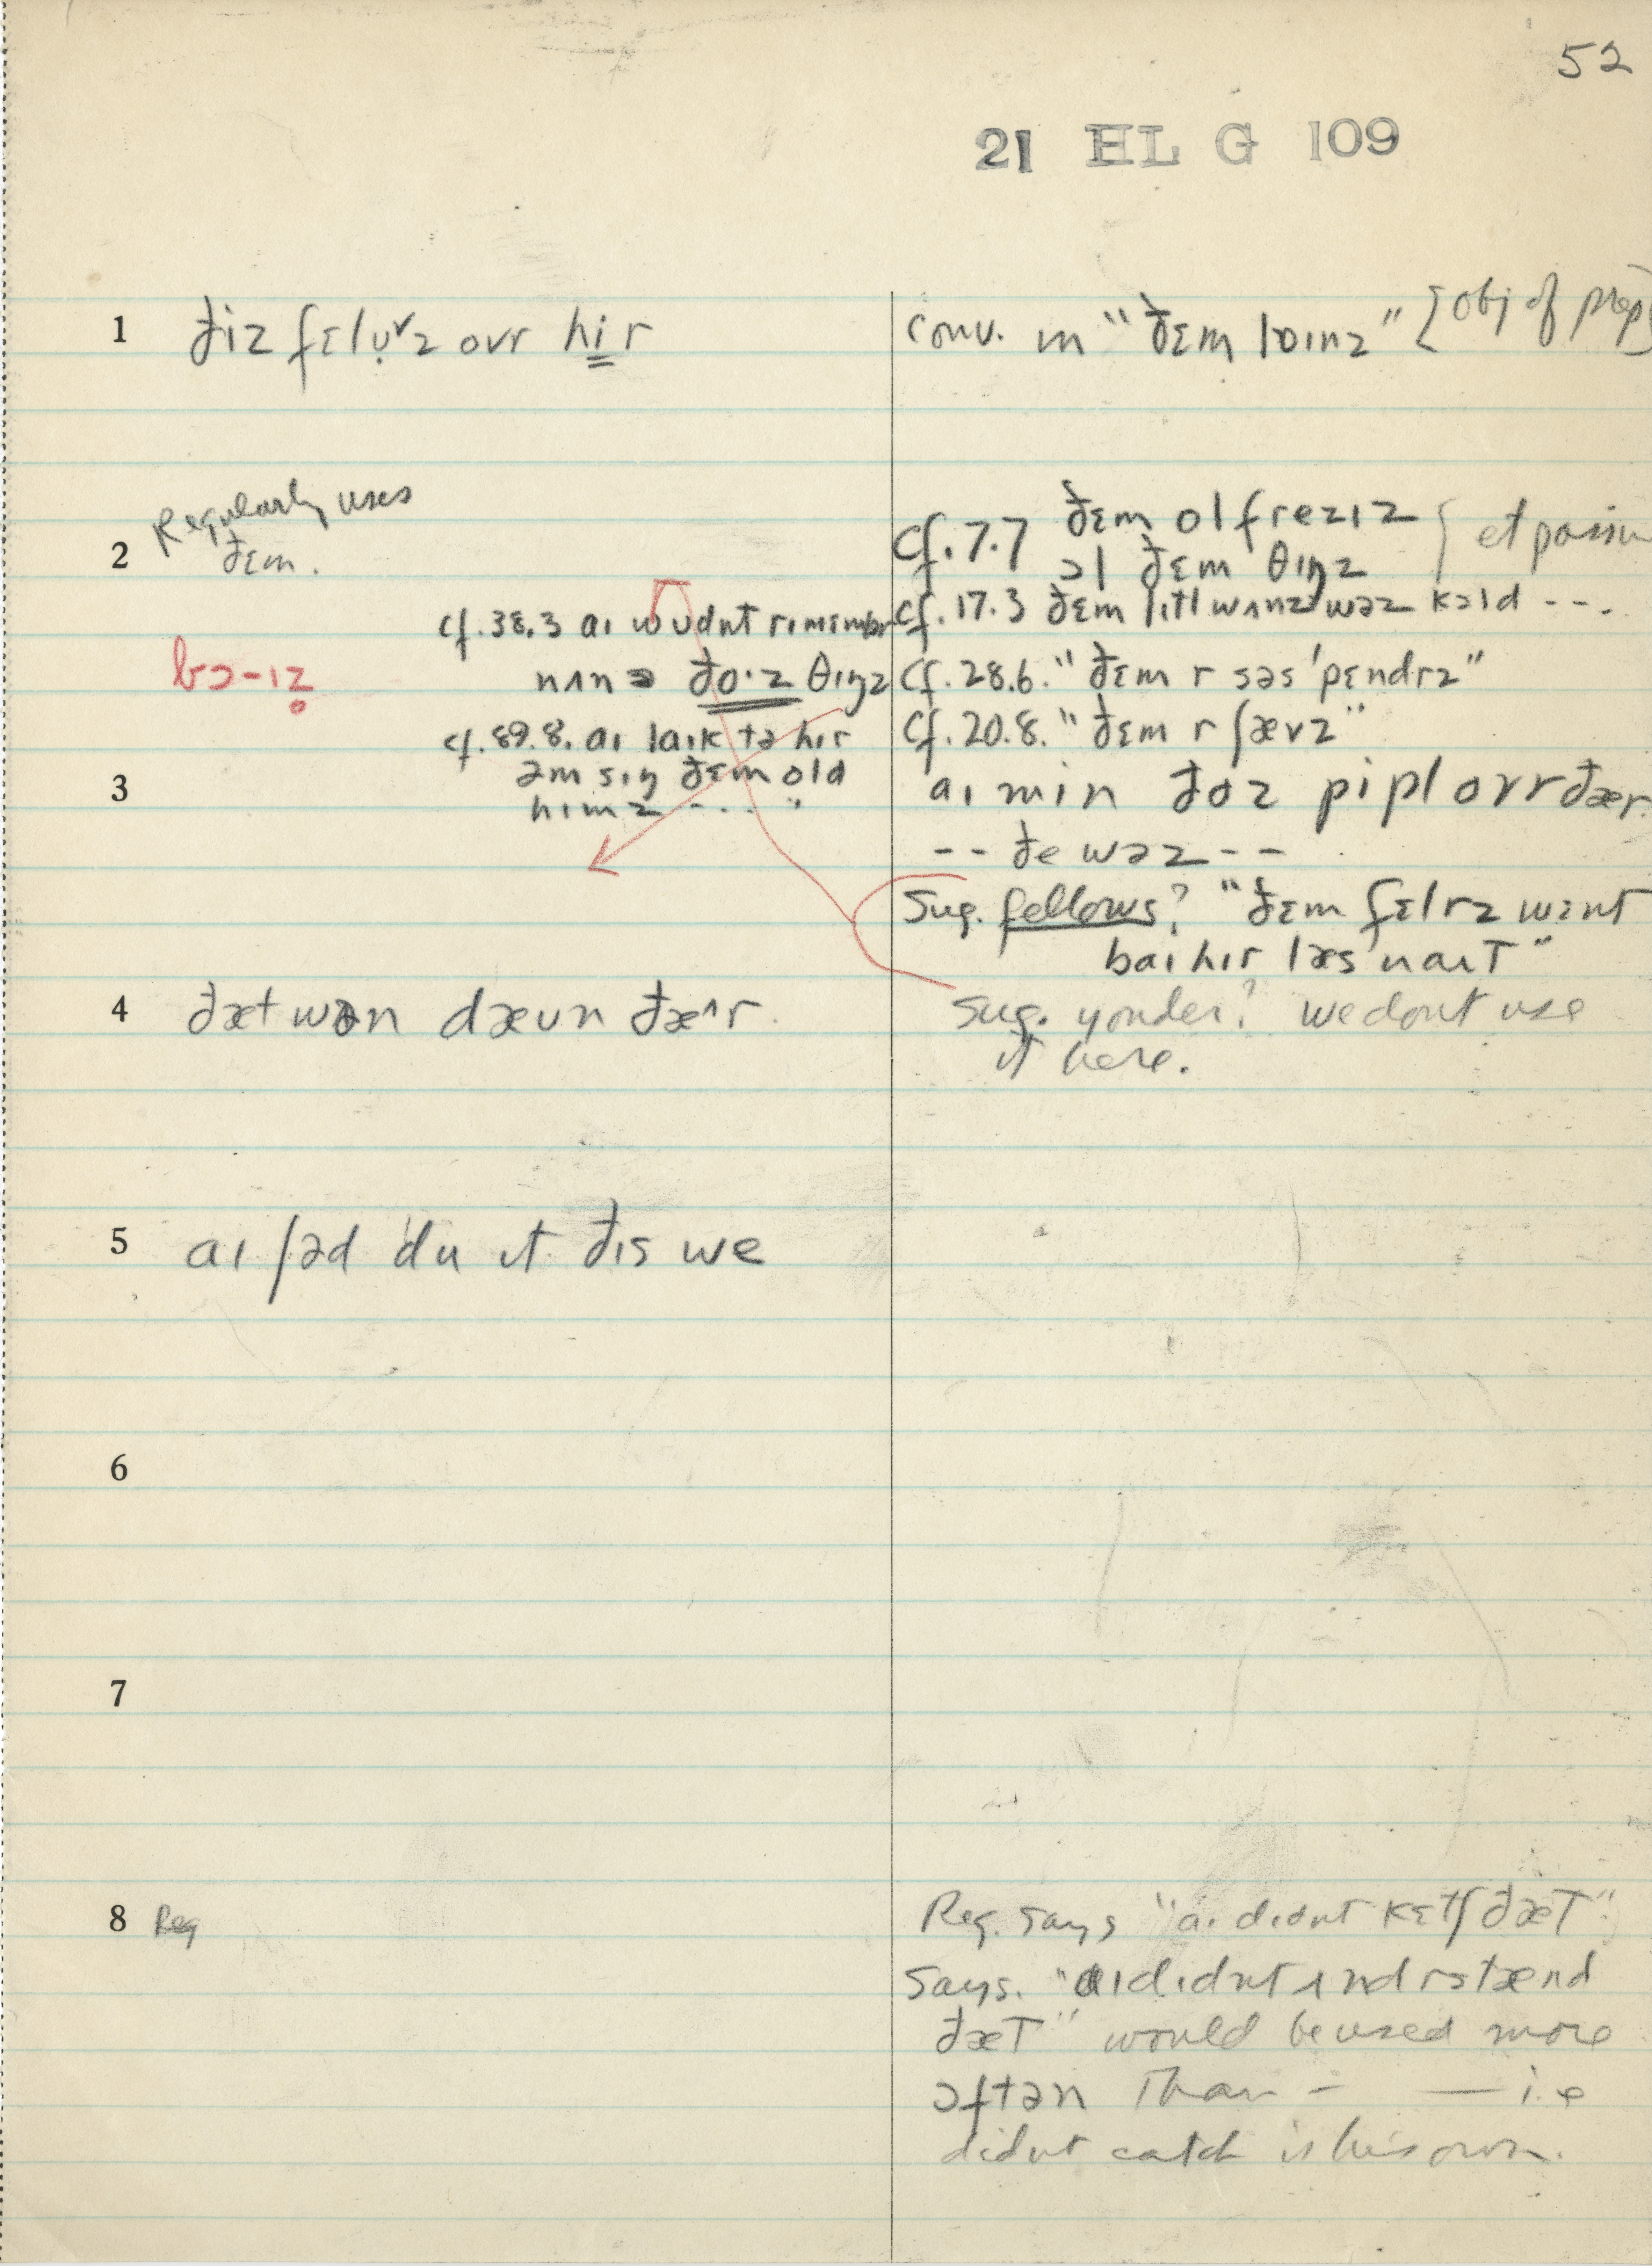 52
21 HL G 109
1 ðiz fɛlụ˅z ovr hi̳r
conv. m "ðɛm loinz" [obj of prep]
2 Regularly uses
ðɛm.
cf. 7.7 ðɛm ol frezɪz } et passim
ɔl ðɛm θɪŋz
cf. 38.3 aɪ wudnt rɪmɛmbr
cf. 17.3 ðɛm lɪtl wʌnz wəz kɔld ---.
bɔ-ɪz̥
nʌn ə ðo·z θɪŋz
cf. 28.6. "ðɛm r səs'pɛndrz"
cf. 89.8. aɪ laɪk tə hɪr
cf. 20.8. "ðɛm r ʃævz"
əm sɪŋ ðɛm old
hɪmz - . . . "
3 aɪ min ðoz pipl ovr ðær.
-- ðe wəz --
Sug. fellows? "ðɛm fɛlrz wɛnt
baɪ hɪr læs naɪt"
4 ðæt wən dæun ðæ^r.
Sug. yonder? we dont use
it here.
5 aɪ ʃəd 'du ɪt ðɪs we
6
7
8 Reg
Reg. says "aɪ dɪdnt kɛtʃ ðæt"
Says. "aɪ dɪdnt ʌndrstænd
ðæt" would be used more
ɔftən than - — i.e
didnt catch is his own.